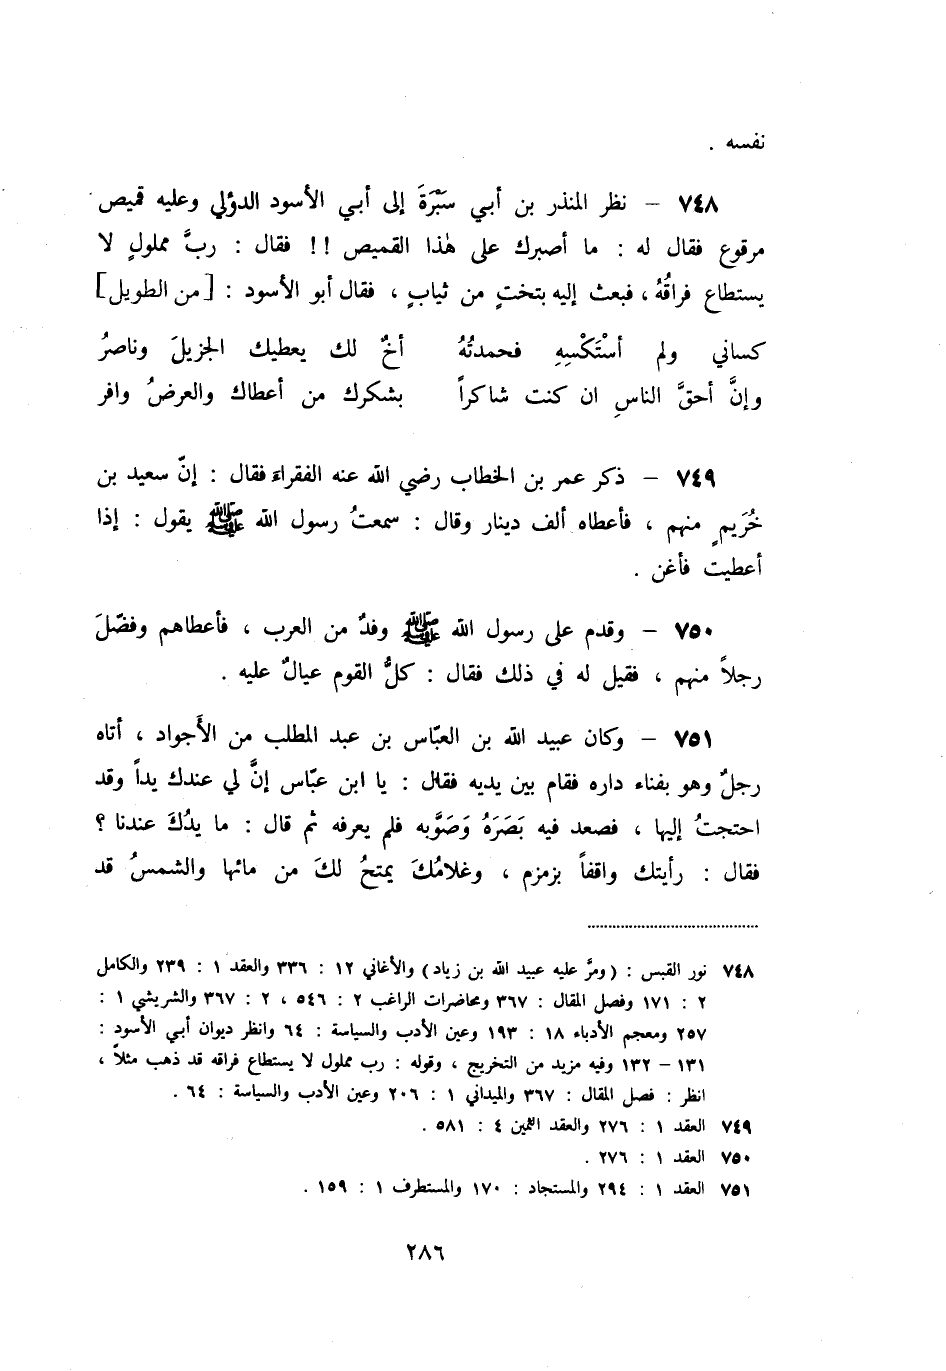 نفسه .
٧٤٨ – نظر المنذر بن أبي سَبْرَةَ إلى أبي الأسود الدؤلي وعليه قميص
مرقوع فقال له : ما أصبرك على هٰذا القميص !! فقال : ربَّ مملولٍ لا
يستطاع فراقُهُ ، فبعث إليه بتختٍ من ثيابٍ ، فقال أبو الأسود : [من الطويل]
كساني ولم أسْتَكْسِهِ فحمدتُهُ أخٌ لك يعطيك الجزيلَ وناصرُ
وإنَّ أحقَّ الناسِ ان كنت شاكراً بشكرك من أعطاك والعرضُ وافر
٧٤٩ – ذكر عمر بن الخطاب رضي الله عنه الفقراءَ فقال : إنّ سعيد بن
خُرَيمٍ منهم ، فأعطاه ألف دينار وقال : سمعتُ رسول الله ﷺ يقول : إذا
أعطيت فأغن .
٧٥٠ – وقدم على رسول الله ﷺ وفدٌ من العرب ، فأعطاهم وفضّلَ
رجلاً منهم ، فقيل له في ذلك فقال : كلُّ القوم عيالٌ عليه .
٧٥١ – وكان عبيد الله بن العبّاس بن عبد المطلب من الأَجواد ، أتاه
رجلٌ وهو بفناء داره فقام بين يديه فقال : يا ابن عبّاس إنَّ لي عندك يداً وقد
احتجتُ إليها ، فصعد فيه بَصَرَهُ وَصَوَّبه فلم يعرفه ثم قال : ما يدُكَ عندنا ؟
فقال : رأيتك واقفاً بزمزم ، وغلامُكَ يمتحُ لكَ من مائها والشمسُ قد
٧٤٨ نور القبس : (ومرَّ عليه عبيد الله بن زياد) والأغاني ١٢ : ٣٣٦ والعقد ١ : ٢٣٩ والكامل
٢ : ١٧١ وفصل المقال : ٣٦٧ ومحاضرات الراغب ٢ : ٥٤٦ ، ٢ : ٣٦٧ والشريشي ١ :
٢٥٧ ومعجم الأدباء ١٨ : ١٩٣ وعين الأدب والسياسة : ٦٤ وانظر ديوان أبي الأسود :
١٣١ – ١٣٢ وفيه مزيد من التخريج ، وقوله : رب مملول لا يستطاع فراقه قد ذهب مثلاً ،
انظر : فصل المقال : ٣٦٧ والميداني ١ : ٢٠٦ وعين الأدب والسياسة : ٦٤ .
٧٤٩ العقد ١ : ٢٧٦ والعقد الثمين ٤ : ٥٨١ .
٧٥٠ العقد ١ : ٢٧٦ .
٧٥١ العقد ١ : ٢٩٤ والمستجاد : ١٧٠ والمستطرف ١ : ١٥٩ .
٢٨٦